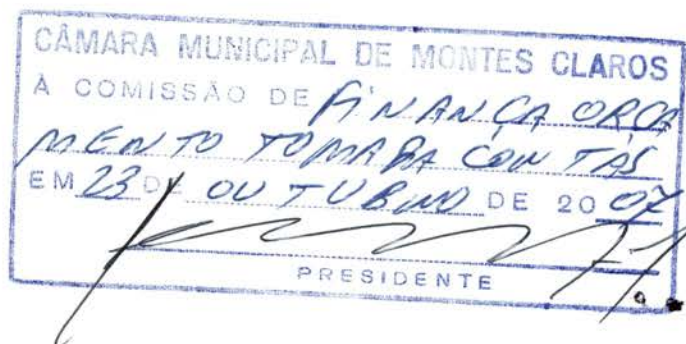 CÂMARA MUNICIPAL DE MONTES CLAROS
À COMISSÃO DE FINANÇA ORÇA
MENTO TOMADA CONTAS
EM 23 DE OUTUBRO DE 2007
PRESIDENTE